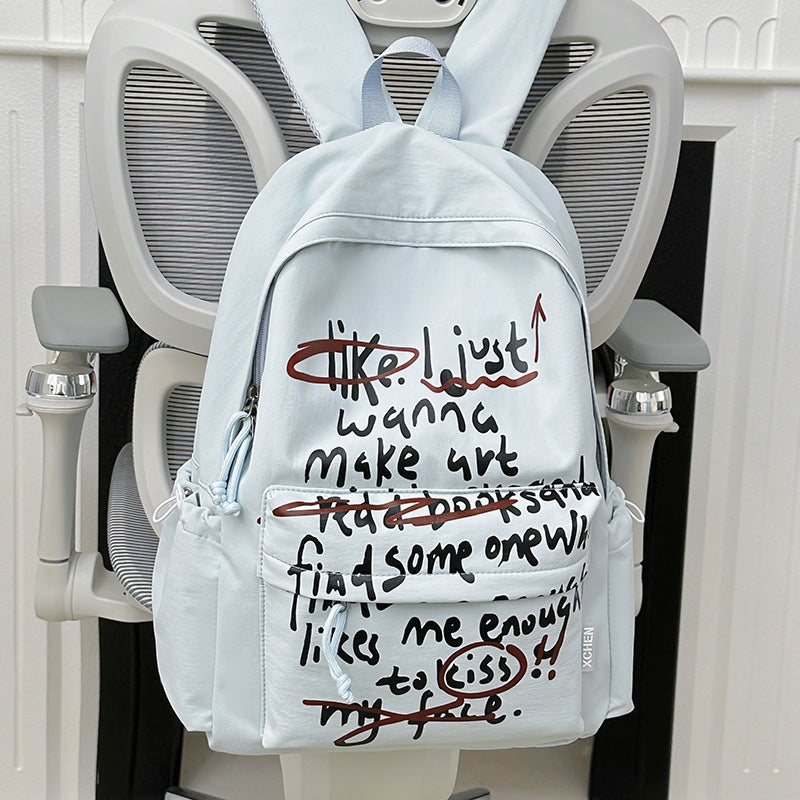 like. I just
wanna
make art
read books and
find some one wh
likes me enough
to kiss!!
my face.
XCHEN